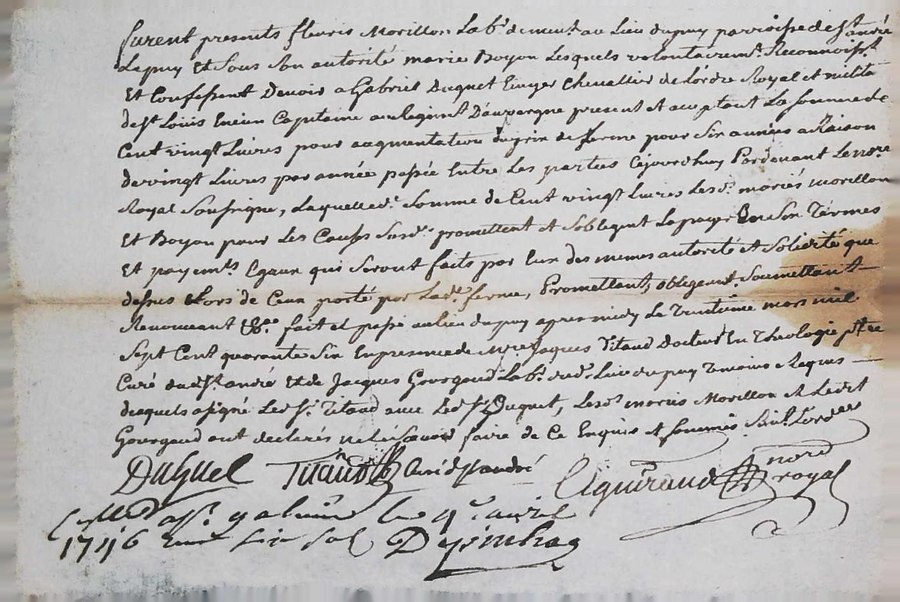 furent presents fleuris Morillon Lab.r demeut. au Lieu dupuy parroisse de st. andré
Lepuy et sous son autorité marie Boyon Lesquels volontairemt. Reconnoisst.
Et Confessent Devoir a Gabriel Duguet Ecuyer Chevallier de Lordre Royal et milite.
de st. Louis Encien Capitaine au Regimt. Dauvergne present et aceptant La somme de
Cent vingt Livres pour augmentation du prix de ferme pour Six années a Raison
de vingt Livres par année passée Entre Les parties Cejourdhuy Pardevant Le nore.
Royal Soussigne, Laquelle d. Somme de Cent vingt Livres Lesd. mariés morillon
Et Boyon pour Les Causes Susd. promettent et sobligent La payer En Six Termes
Et payemts. Egaux qui seront faits par Eux des memes autorité et Solidité que
dessus Lors de Ceux porté par Lad. ferme, Promettant, obligeant, Soumettant
Renonceant &ce. fait et passé aulieu dupuy apres midy Le Trentieme mars mil
Sept Cent quarante Six En presence de Mre. Jaques Titaud Docteur En Theologie ptre.
Curé dud. st. andré Et de Jacques Gourgaud Lab.r dud. Lieu dupuy Temoins Requis
desquels a signé Led. sr. Titaud avec Led. sr. Duguet, Lesd. mariés Morillon et Ledit
Gourgaud ont declarés ne Le Scavoir faire de Ce Enquis et sommés Suivt. Lord.ce
Duguet Titaud curé de st andré
nore
royal
le 4e avril
1746